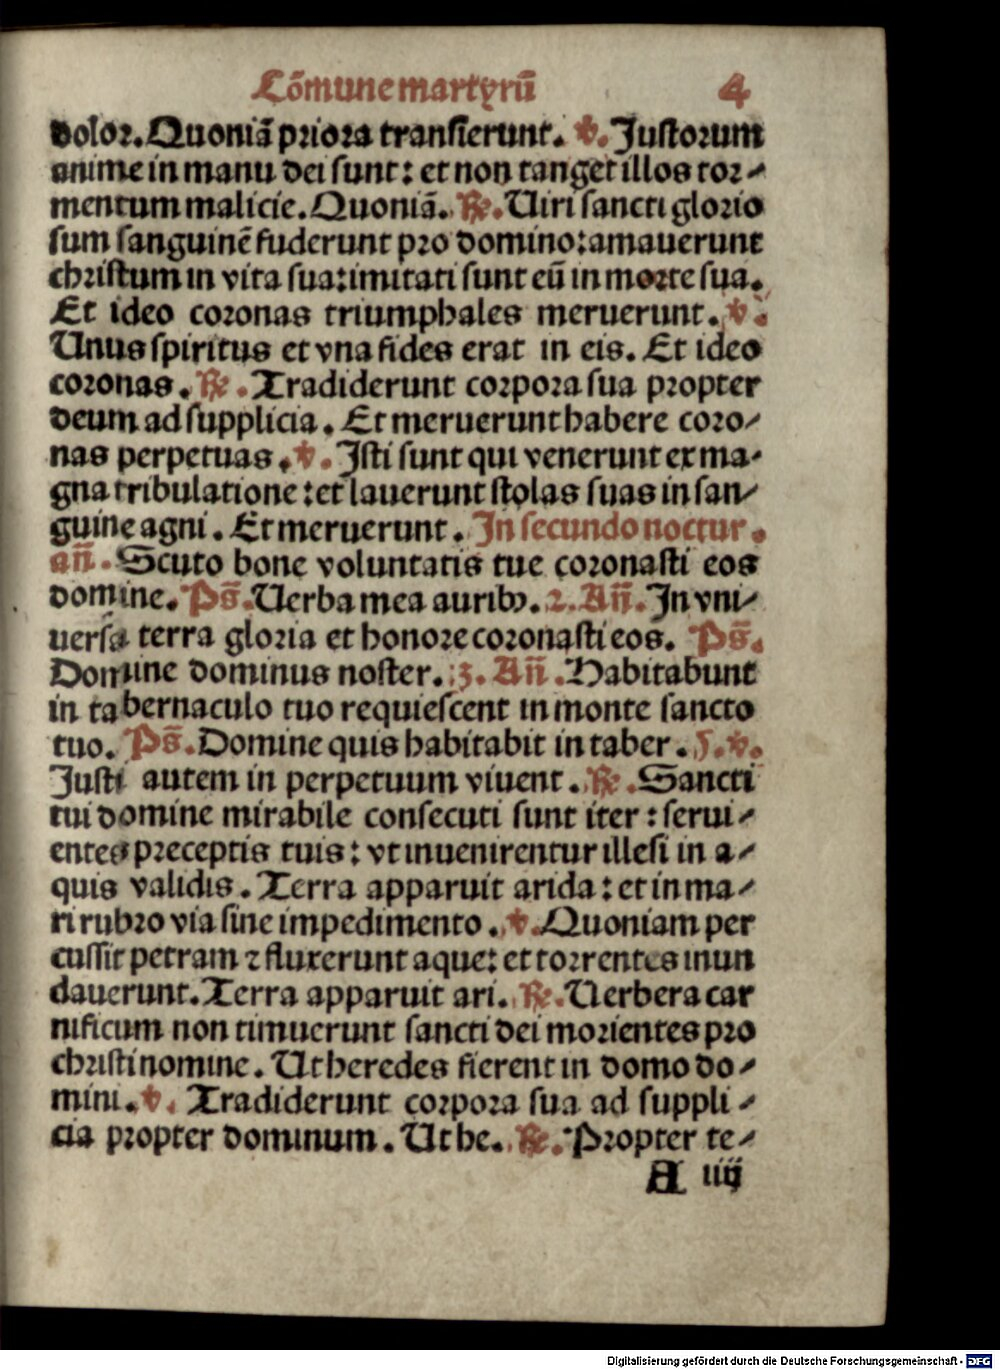 Cōmune martyrū 4
dolor. Quoniā priora transierunt. ℣. Justorum
anime in manu dei sunt: et non tanget illos tor-
mentum malicie. Quoniā. ℞. Uiri sancti glorio
sum sanguinē fuderunt pro domino: amauerunt
christum in vita sua: imitati sunt eū in morte sua.
Et ideo coronas triumphales meruerunt. ℣.
Unus spiritus et vna fides erat in eis. Et ideo
coronas. ℞. Tradiderunt corpora sua propter
deum ad supplicia. Et meruerunt habere coro-
nas perpetuas. ℣. Isti sunt qui venerunt ex ma-
gna tribulatione: et lauerunt stolas suas in san-
guine agni. Et meruerunt. In secundo noctur.
añ. Scuto bone voluntatis tue coronasti eos
domine. Ps̄. Uerba mea auribꝯ. 2. Añ. In vni-
uersa terra gloria et honore coronasti eos. Ps̄.
Domine dominus noster. 3. Añ. Habitabunt
in tabernaculo tuo requiescent in monte sancto
tuo. Ps̄. Domine quis habitabit in taber. ℣.
Justi autem in perpetuum viuent. ℞. Sancti
tui domine mirabile consecuti sunt iter: serui-
entes preceptis tuis: vt inuenirentur illesi in a-
quis validis. Terra apparuit arida: et in ma-
ri rubro via sine impedimento. ℣. Quoniam per
cussit petram ⁊ fluxerunt aque: et torrentes inun
dauerunt. Terra apparuit ari. ℞. Uerbera car
nificum non timuerunt sancti dei morientes pro
christi nomine. Ut heredes fierent in domo do-
mini. ℣. Tradiderunt corpora sua ad suppli-
cia propter dominum. Ut he. ℞. Propter te-
A iiij
Digitalisierung gefördert durch die Deutsche Forschungsgemeinschaft - DFG